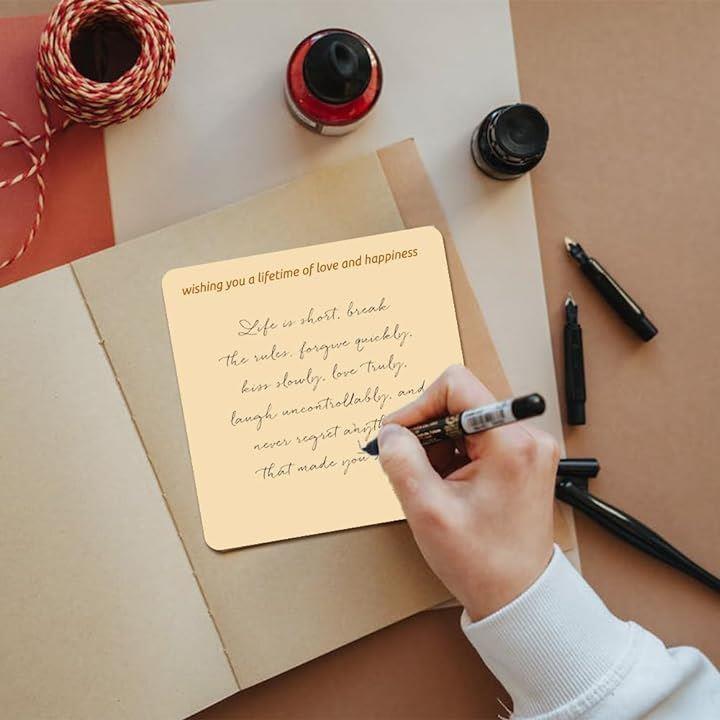 wishing you a lifetime of love and happiness
Life is short, break
the rules, forgive quickly,
kiss slowly, love truly,
laugh uncontrollably, and
never regret
that made you